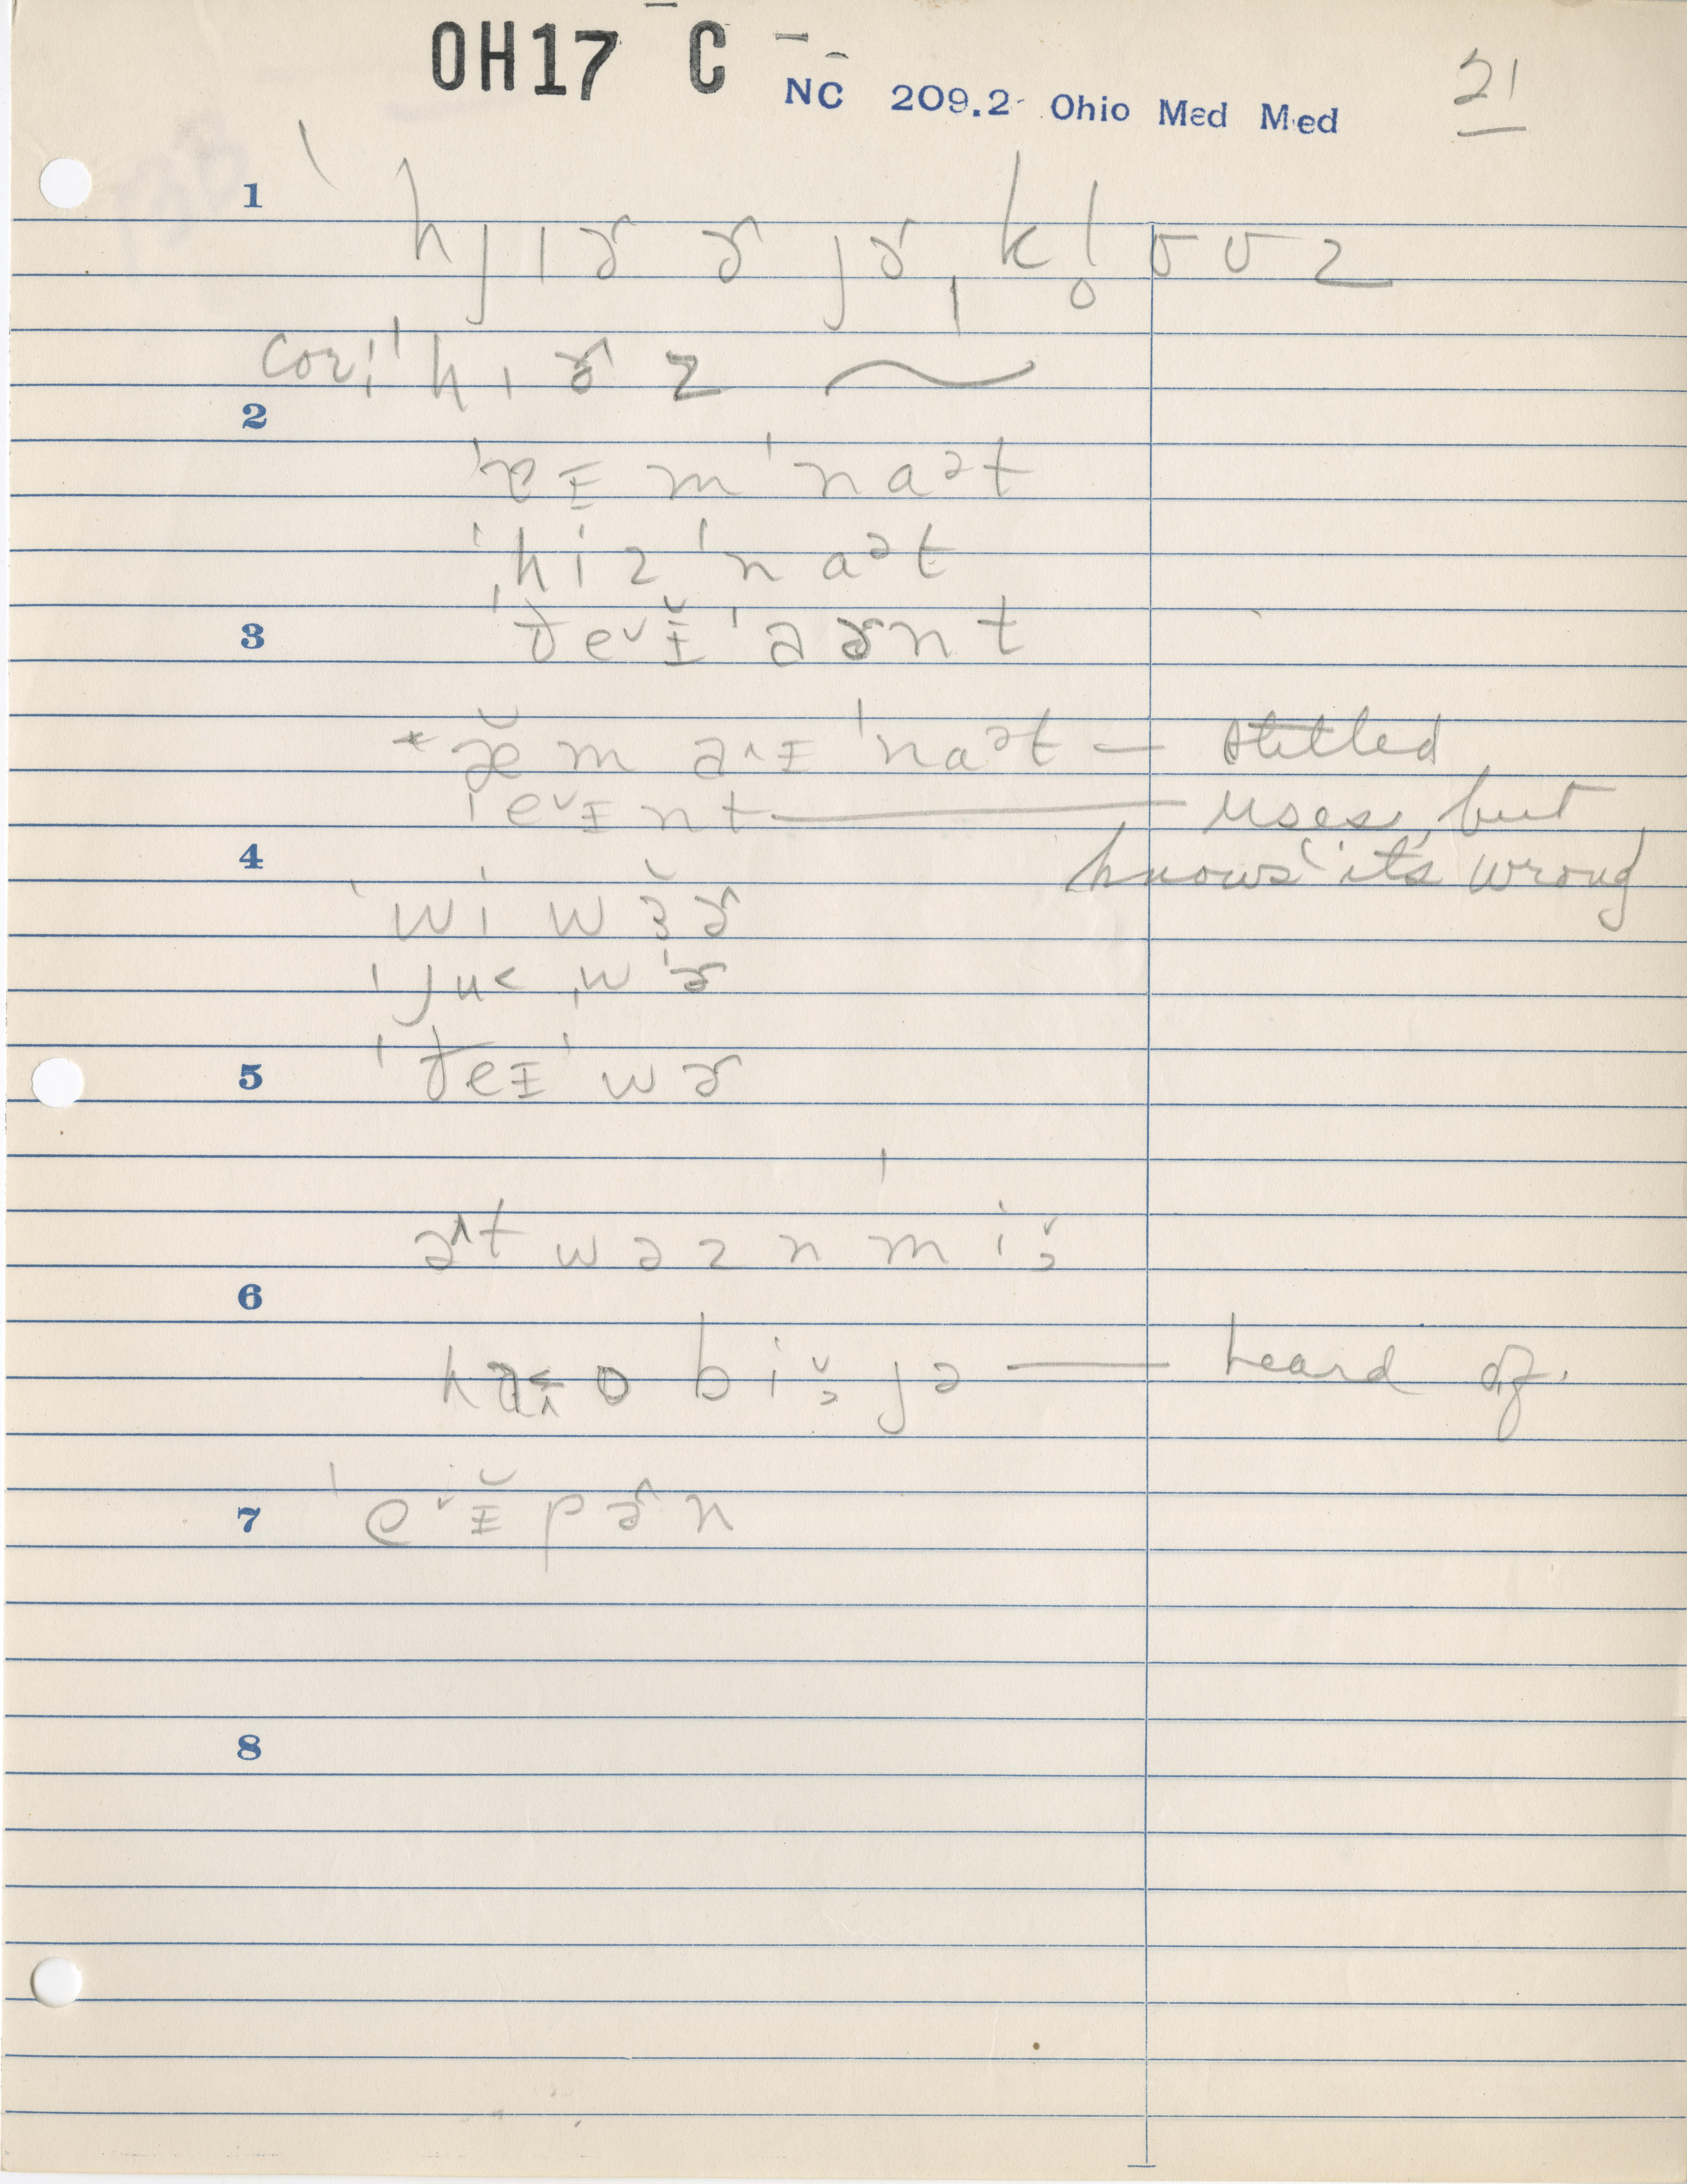 OH17 C
NC 209.2 Ohio Med Med
21
1
ˈhjɪɚ ɚ jɚˌk!ʊʊz
cor: ˈhɪɚz ~
2
ˈɐɪm ˈnaᵊt
ˈhiz ˈnaᵊt
3 ˈðeˇɪ̆ ˈaɚnt
*æ̆m a˄ɪ ˈnaᵊt — stilted
ˈeˇɪnt — uses, but
4 knows it's wrong
ˈwi wɜ̆ɚ
ˈju˂ ˌwɚ
5 ˈðeɪ ˈwɚ
ə˄t wəzn mi
6
bi jə — heard of.
7 ˈeˇɪ̆pɚn
8